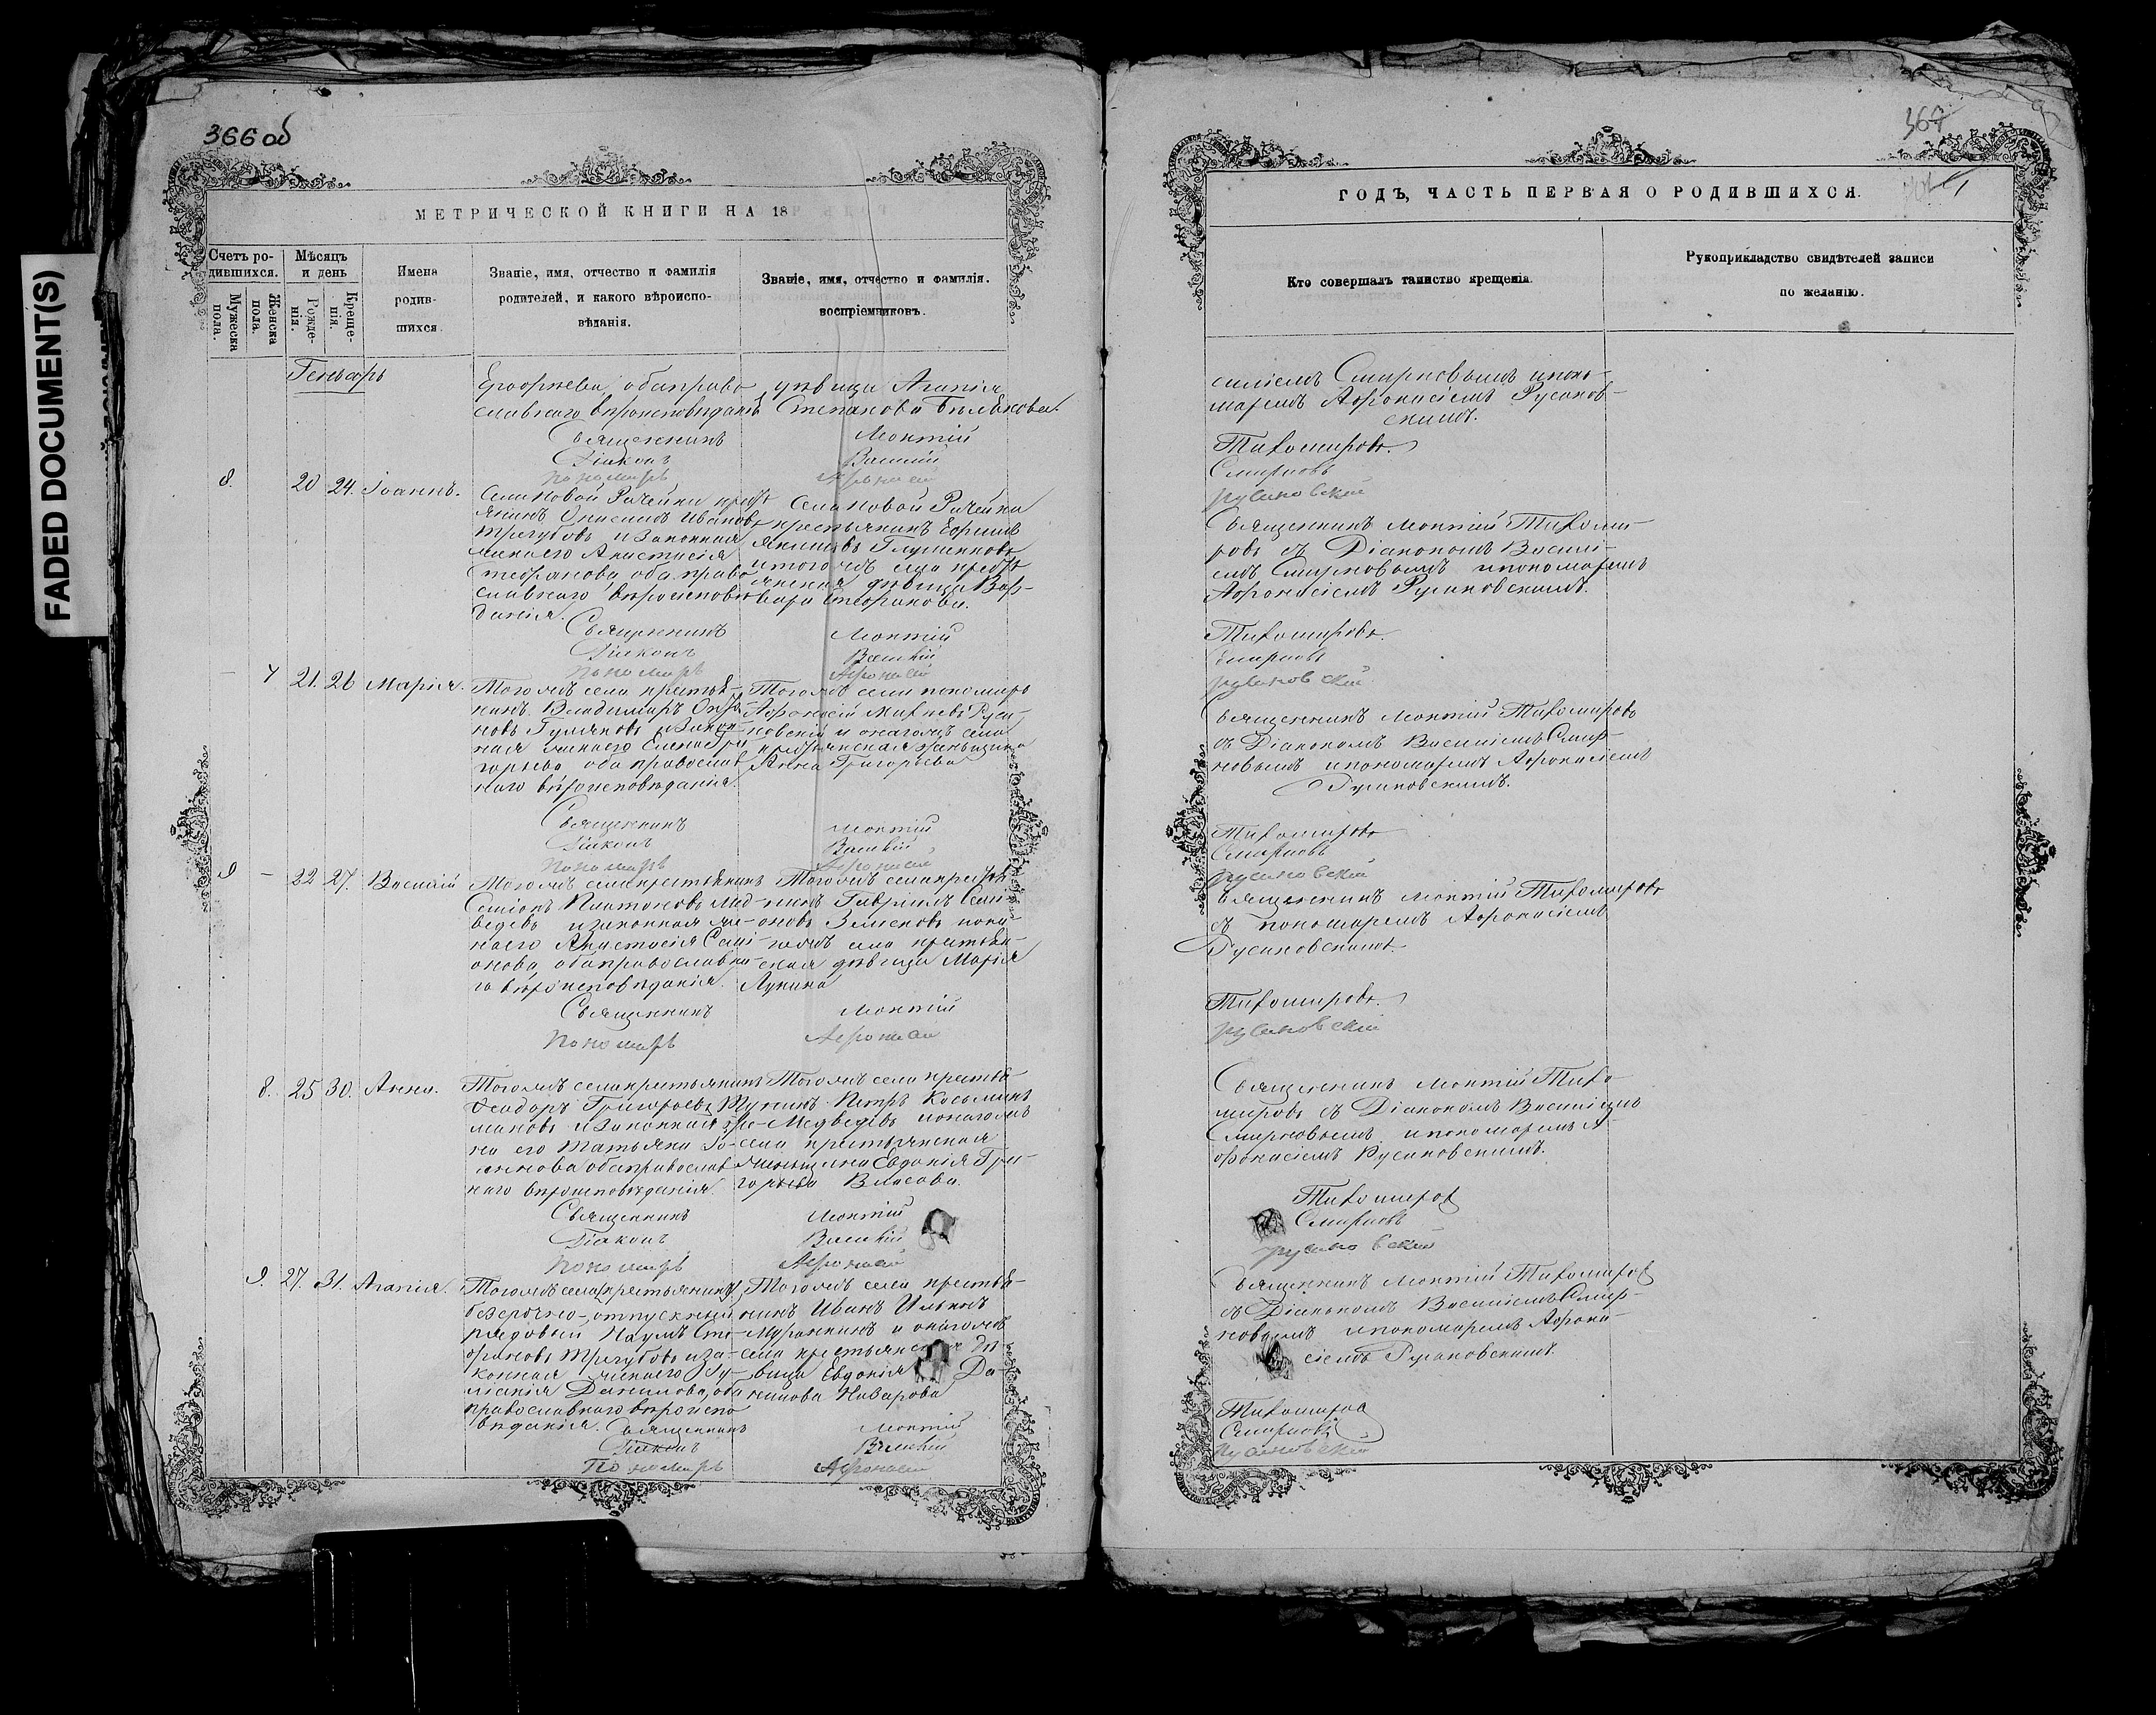 FADED DOCUMENT(S)
366 об
МЕТРИЧЕСКОЙ КНИГИ НА 18
Счетъ ро-
дившихся.
Мужеска
пола.
Женска
пола.
Мѣсяцъ
и день
Рожде-
нія.
Креще-
нія.
Имена
родив-
шихся
Званіе, имя, отчество и фамилія
родителей, и какого вѣроиспо-
вѣданія.
Званіе, имя, отчество и фамилія.
воспріемниковъ.
Генварь
оба право-
славнаго вѣроисповѣданія
Священникъ
Діаконъ
Пономарь
дѣвица Агапія
Степанова
Монтій
Василій
Афонасій
8. 20 24. Іоаннъ.
Села Новой Рачейки крестъ
янинъ Иванов
Трегубовъ и законная
жена его Анастасія
Стефанова оба право
славнаго вѣроисповѣ
данія.
Священникъ
Діаконъ
Пономарь
Села Новой Рачейки
крестьянинъ Ефимъ
и того жъ села крестъ
янская дѣвица Вар-
вара Стефанова.
Монтій
Василій
Афонасій
— 7 21. 26 Марія.
Того жъ села крестья-
нинъ Владимиръ
новъ и закон-
ная жена его Елена Гри
горьева оба православ
наго вѣроисповѣданія.
Священникъ
Діаконъ
Пономарь
Того жъ села пономарь
Афонасій Руса-
новскій и онагожъ села
крестьянская женьщина
Анна Григорьева
Монтій
Василій
Афонасій
9 — 22 27. Василій
Того жъ села крестьянинъ
Симіонъ Платоновъ Мед-
ведевъ и законная же-
на его Анастасія Сими-
онова оба православна-
го вѣроисповѣданія.
Священникъ
Пономарь
Того жъ села крестья
нинъ Гавріилъ Сими-
оновъ и она
гожъ села крестьян-
ская дѣвица Марія
Лукина
Монтій
Афонасій
8. 25 30. Анна.
Того жъ села крестьянинъ
Феодоръ Григорьевъ
мановъ и законная же-
на его Татьяна Іо-
аннова оба православ
наго вѣроисповѣданія.
Священникъ
Діаконъ
Пономарь
Того жъ села крестья
нинъ Петръ Косьминъ
Медведевъ и онагожъ
села крестьянская
женьщина Евдокія Гри-
горьева Власова.
Монтій
Василій
Афонасій
9. 27. 31. Агапія.
Того жъ села крестьянинъ
безсрочно-отпускный
рядовый Наумъ Сте-
фановъ Трегубовъ и за-
конная жена его
Данилова оба
православнаго вѣроиспо
вѣданія. Священникъ
Діаконъ
Пономарь
Того жъ села крестья-
нинъ Иванъ Ильинъ
и онагожъ
села крестьянская дѣ-
вица Евдокія Да-
нилова Назарова
Монтій
Василій
Афонасій
367
ГОДЪ, ЧАСТЬ ПЕРВАЯ О РОДИВШИХСЯ.
Кто совершалъ таинство крещенія.
Рукоприкладство свидѣтелей записи
по желанію.
силіемъ Смирновымъ и поно-
маремъ Афонасіемъ Русанов-
скимъ.
Тихомировъ
Смирновъ
Русановскій
Священникъ Монтій Тихоми-
ровъ съ Діакономъ Васили-
емъ Смирновымъ и пономаремъ
Афонасіемъ Русановскимъ.
Тихомировъ.
Смирновъ
Русановскій
Священникъ Монтій Тихомировъ
съ Діакономъ Василіемъ Смир-
новымъ и пономаремъ Афонасіемъ
Русановскимъ.
Тихомировъ
Смирновъ
Русановскій
Священникъ Монтій Тихомировъ
съ пономаремъ Афонасіемъ
Русановскимъ
Тихомировъ.
Русановскій
Священникъ Монтій Тихо
мировъ съ Діакономъ Василіемъ
Смирновымъ и пономаремъ А-
фонасіемъ Русановскимъ.
Тихомировъ
Смирновъ
Русановскій
Священникъ Монтій Тихомировъ
съ Діакономъ Василіемъ Смир-
новымъ и пономаремъ Афона-
сіемъ Русановскимъ.
Тихомировъ
Смирновъ
Русановскій